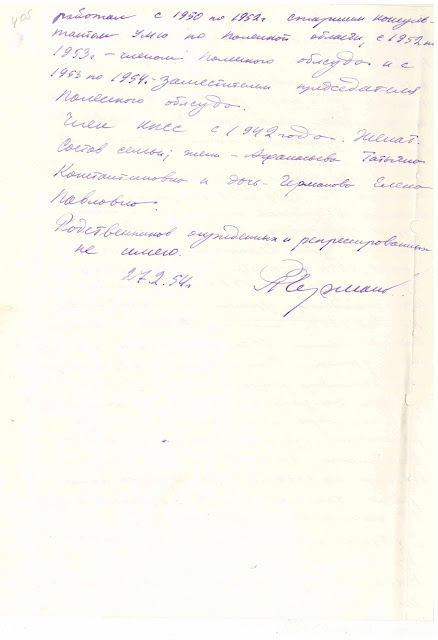 работал с 1950 по 1952г старшим консуль-
тантом УМЮ по Полесской области, с 1952 по
1953г – членом Полесского облсуда и с
1953 по 1954 - Заместителем председателя
Полесского облсуда.
Член КПСС с 1942 года. Женат.
Состав семьи; жена - Афанасьева Татьяна
Константиновна и дочь - Германова Елена
Павловна.
Родственников осужденных и репрессированных
не имею.
27.2.54г